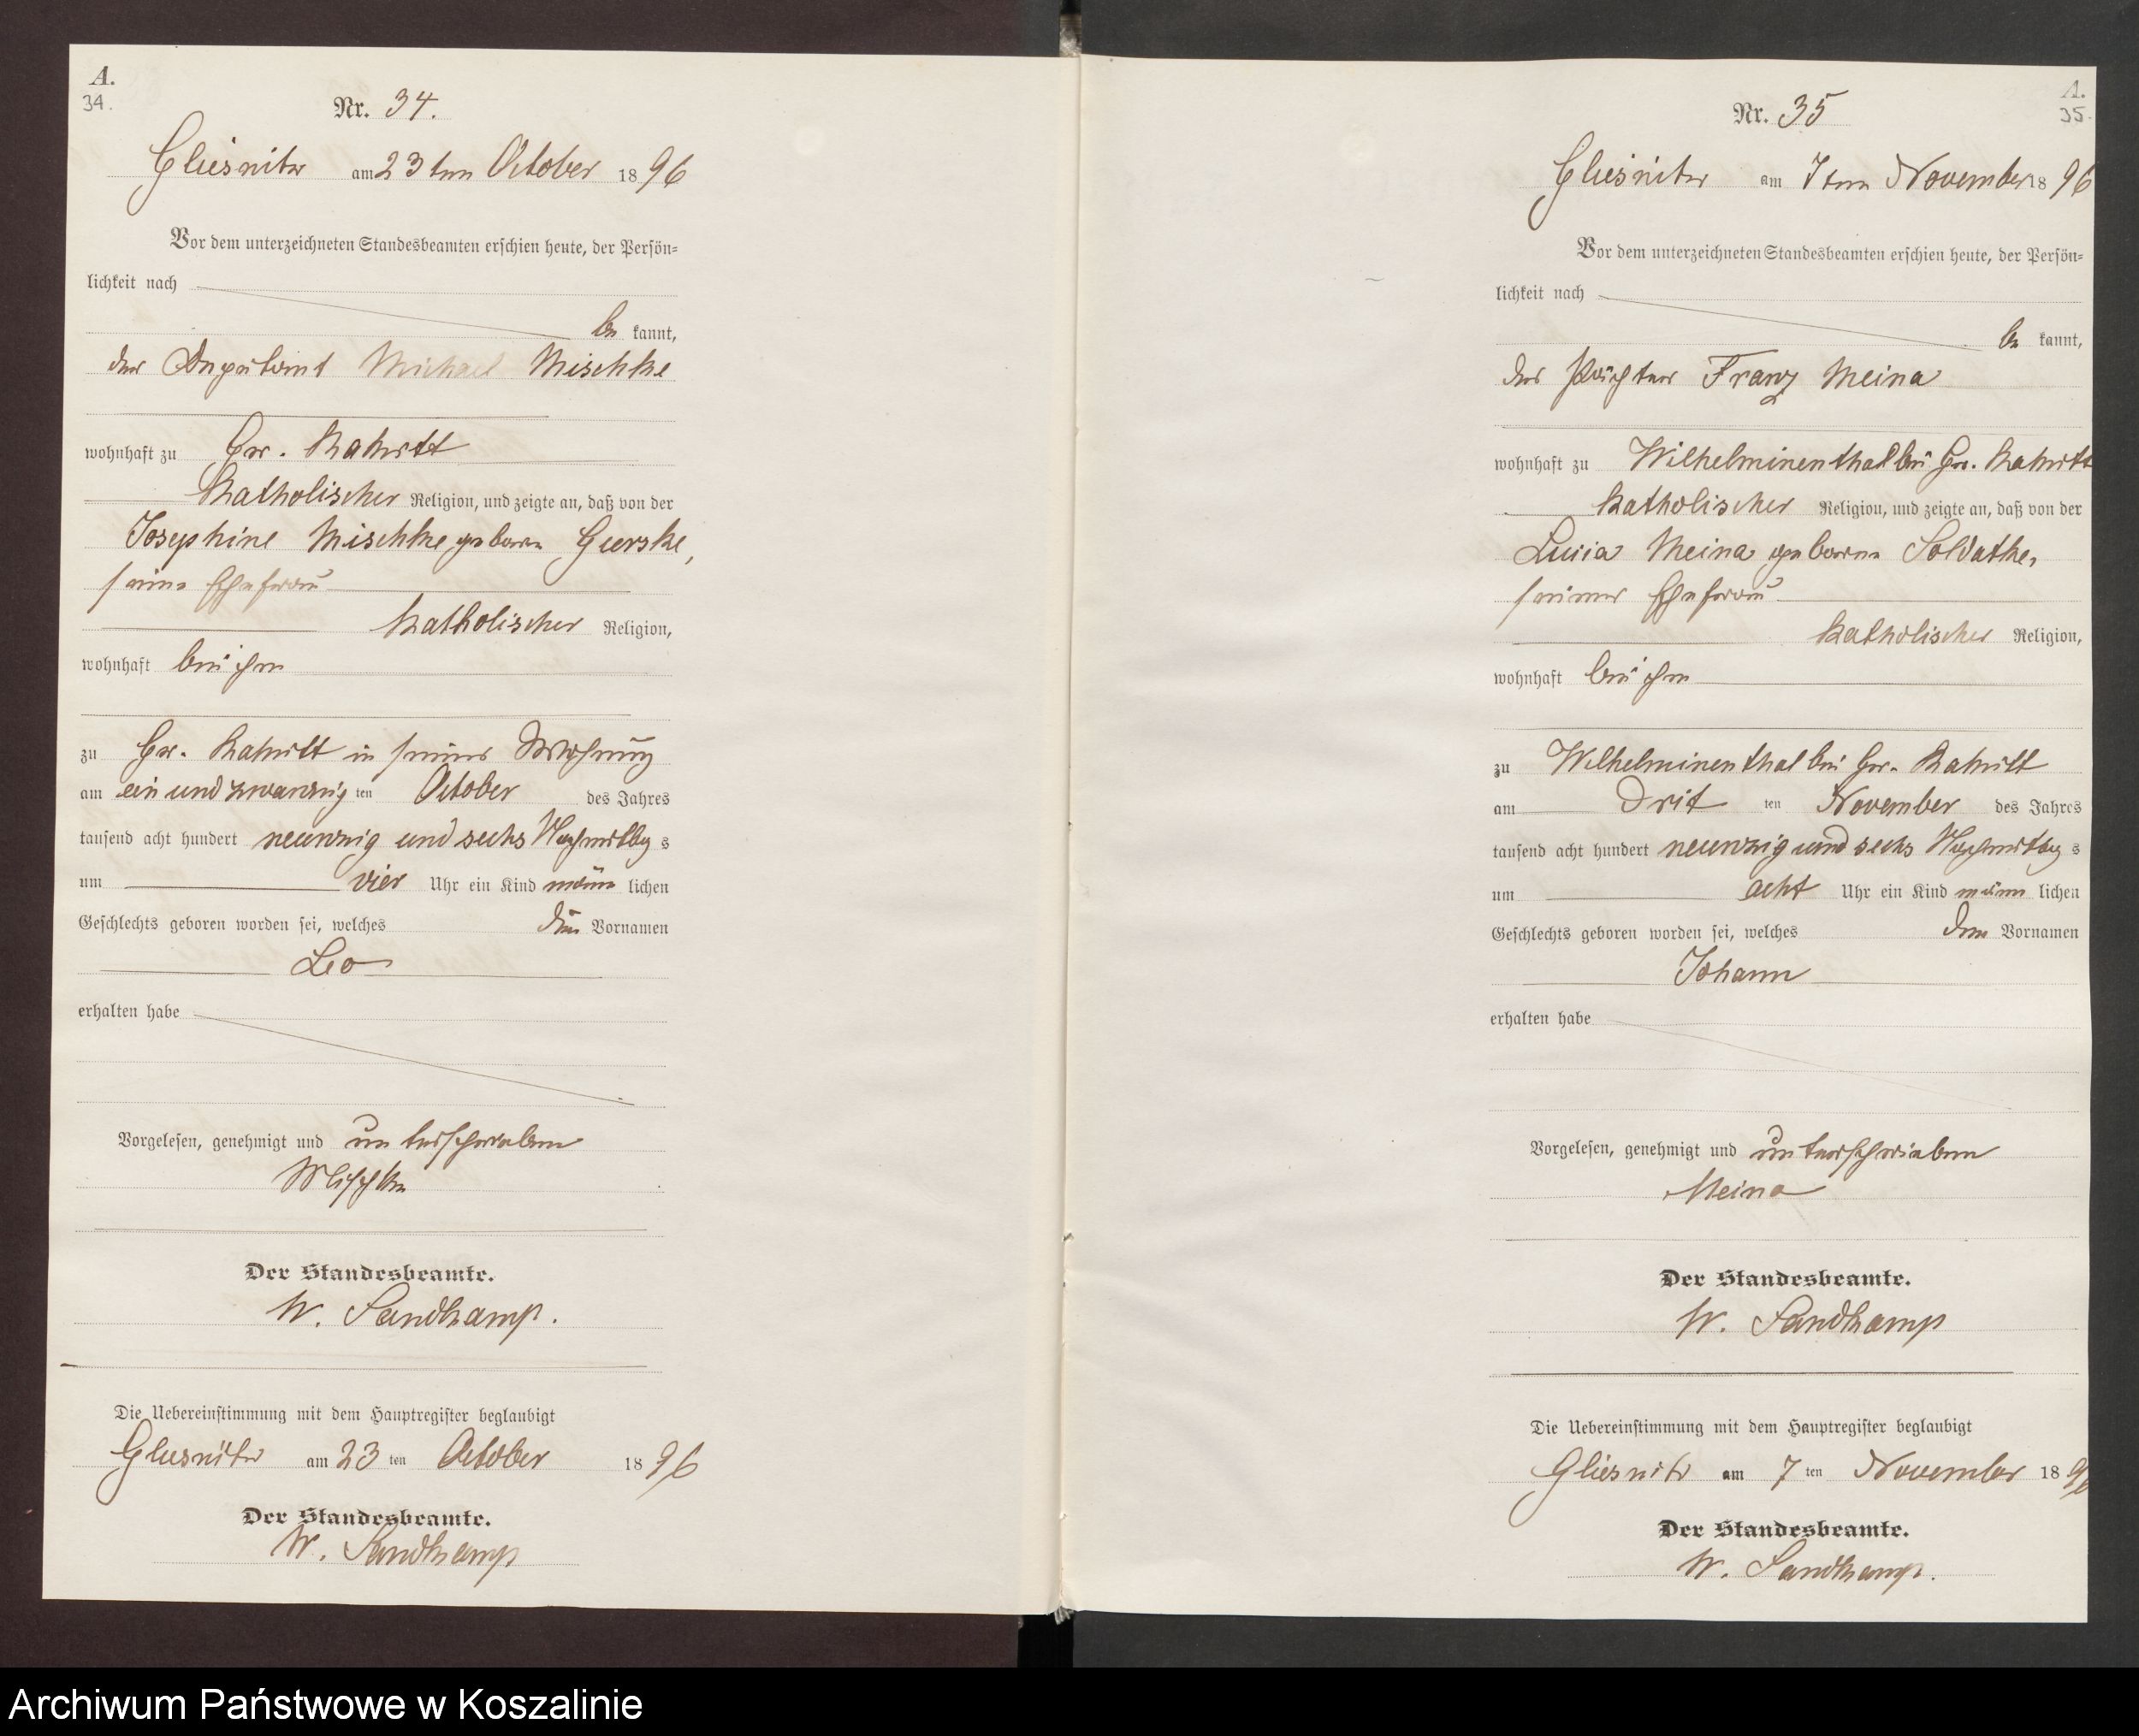 A.
34.
Nr. 34.
Gliesnitz am 23ten October 1896
Vor dem unterzeichneten Standesbeamten erschien heute, der Persön-
lichkeit nach
be kannt,
der Deputant Michael Mischke
wohnhaft zu Gr. Katritt
Katholischer Religion, und zeigte an, daß von der
Josephine Mischke geborn Gurske,
seine Ehefrau
Katholischer Religion,
wohnhaft bei ihm
zu Gr. Katritt in seiner Wohnung
am ein und zwanzig ten October des Jahres
tausend acht hundert neunzig und sechs Nachmittag s
um vier Uhr ein Kind männ lichen
Geschlechts geboren worden sei, welches den Vornamen
Leo
erhalten habe
Vorgelesen, genehmigt und unterschrieben
Mischke
Der Standesbeamte.
W. Sandkamp.
Die Uebereinstimmung mit dem Hauptregister beglaubigt
Gliesnitz am 23 ten October 1896
Der Standesbeamte.
W. Sandkamp
A.
35.
Nr. 35
Gliesnitz am 7ten November 1896
Vor dem unterzeichneten Standesbeamten erschien heute, der Persön-
lichkeit nach
be kannt,
der Pächter Franz Meina
wohnhaft zu Wilhelminenthal bei Gr. Katritt
Katholischer Religion, und zeigte an, daß von der
Lucia Meina geborne Soldatke,
seiner Ehefrau
Katholischer Religion,
wohnhaft bei ihm
zu Wilhelminenthal bei Gr. Katritt
am Drit ten November des Jahres
tausend acht hundert neunzig und sechs Nachmittag s
um acht Uhr ein Kind männ lichen
Geschlechts geboren worden sei, welches den Vornamen
Johann
erhalten habe
Vorgelesen, genehmigt und unterschrieben
Meina
Der Standesbeamte.
W. Sandkamp
Die Uebereinstimmung mit dem Hauptregister beglaubigt
Gliesnitz am 7 ten November 1896
Der Standesbeamte.
W. Sandkamp.
Archiwum Państwowe w Koszalinie